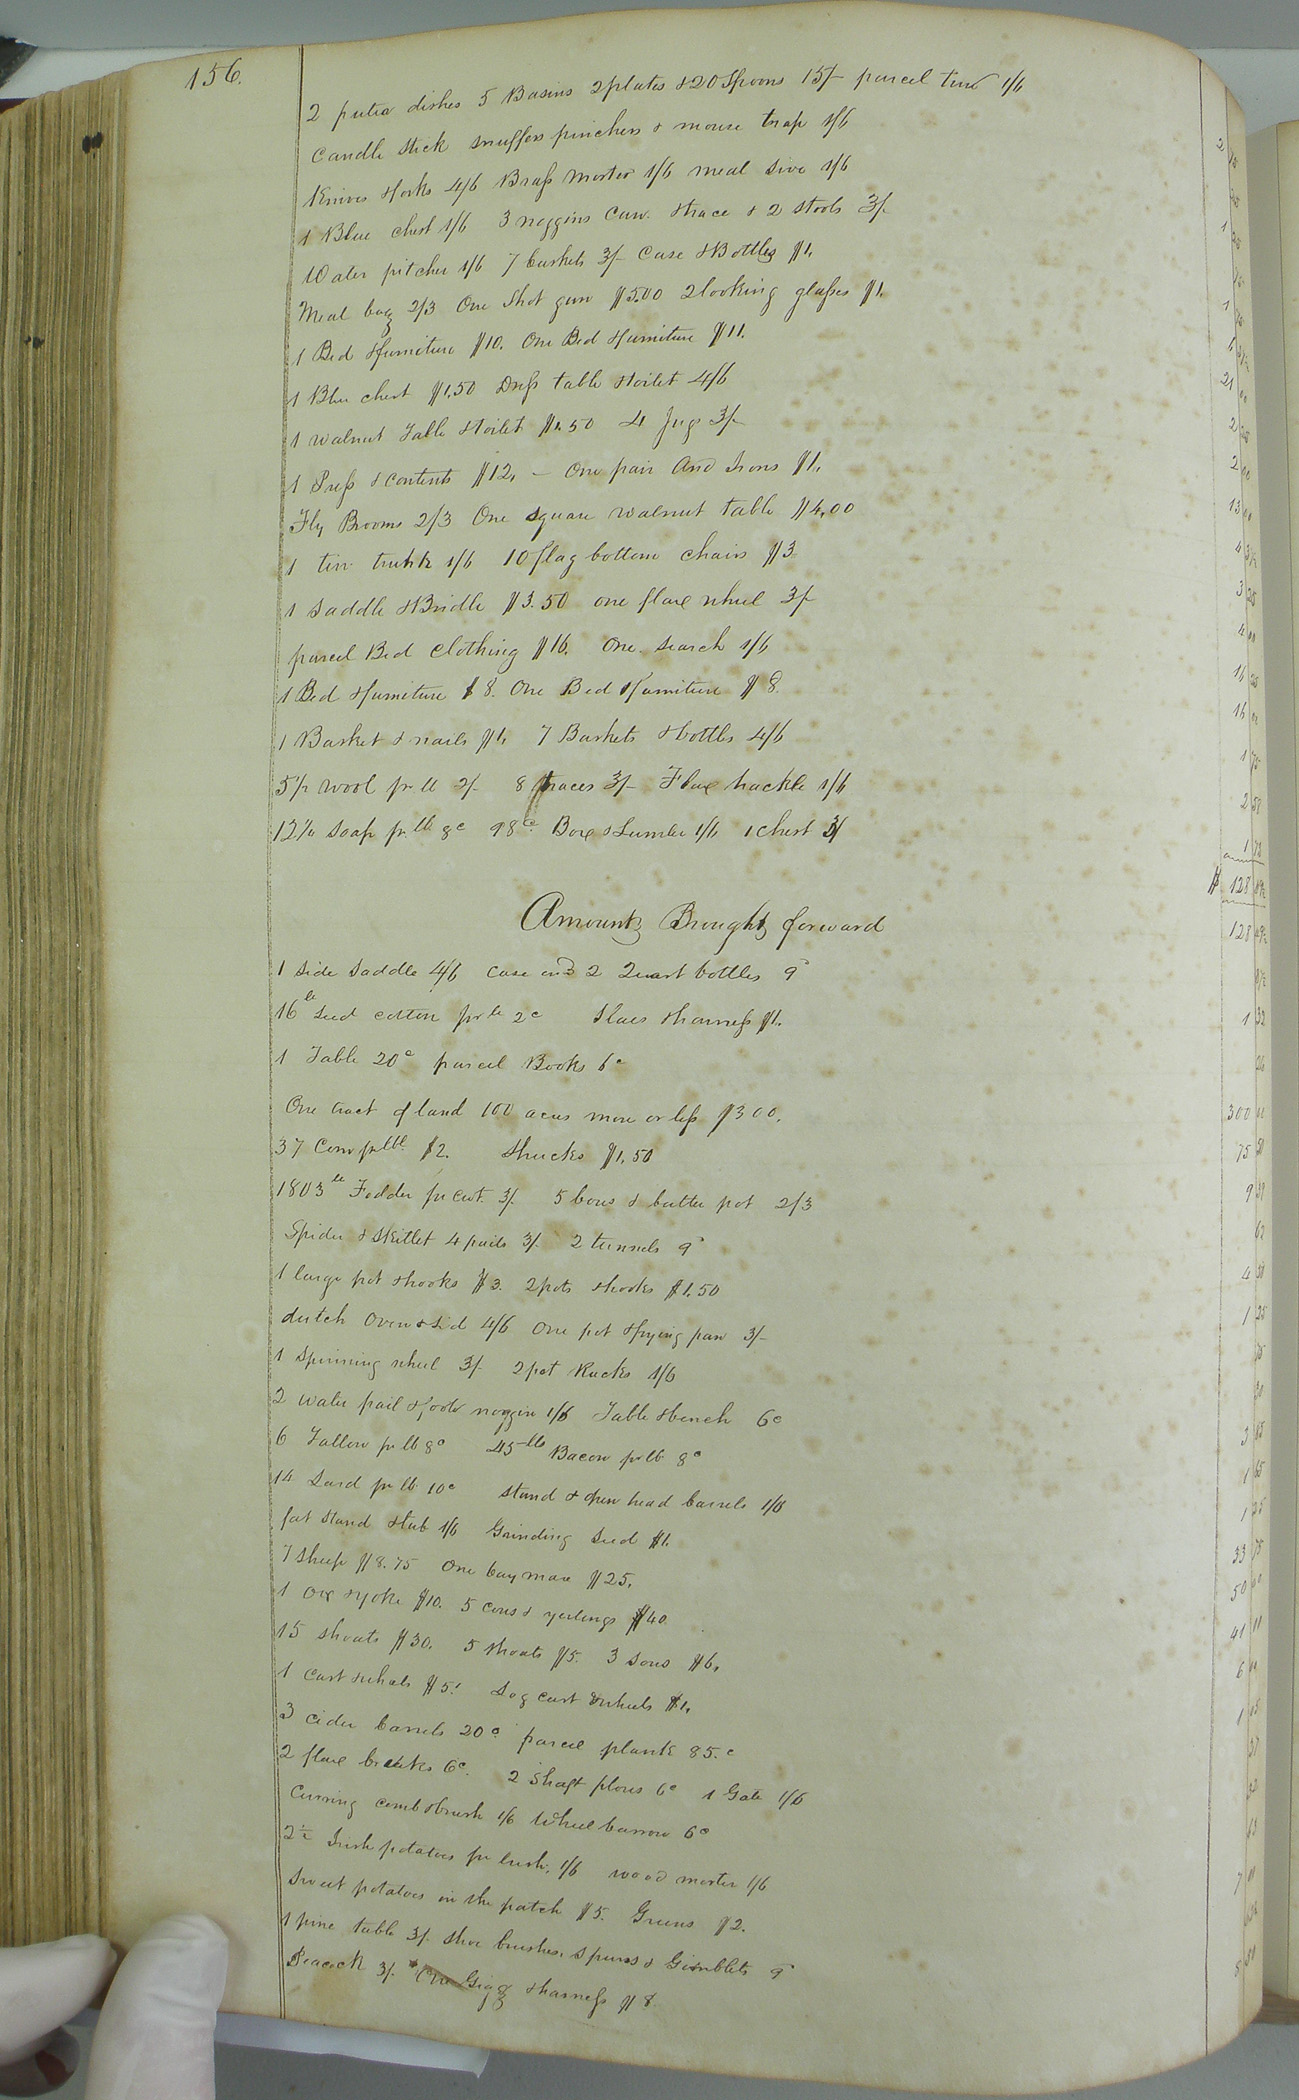 156.
2 putia dishes 5 Basins 2 plates & 20 Spoons 15/- parcel tin 1/6
Candle Stick snuffers pinchers & mouse trap 1/6
Knives & forks 4/6 Brass Morter 1/6 meal sive 1/6
1 Blue chest 1/6 3 noggins & 2 stools 3/-
Water pitcher 1/6 7 baskets 3/- Case & Bottles $1.
Meal bag 2/3 One Shot gun $5.00 2 looking glasses $1.
1 Bed & furniture $10. One Bed & furniture $11.
1 Blue chest $1.50 Dress table & toilet 4/6
1 walnut Table & toilet $1.50 4 Jugs 3/-
1 Press & contents $12. - One pair And Irons $1.
Fly Brooms 2/3 One square walnut table $4.00
1 tin trunk 1/6 10 flag bottom chairs $3
1 Saddle & Bridle $3.50 one flax wheel 3/-
parcel Bed Clothing $16. One Search 1/6
1 Bed & furniture $8. One Bed & furniture $8
1 Basket & nails $1. 7 Baskets & bottles 4/6
wool pr lb 2/- 8 traces 3/- Flax hackle 1/6
soap pr. lb 8c 98c Box & Lumber 1/6 1 chest 3/
$ 128
Amounts Brought forward
128
1 side Saddle 4/6 case and 2 Quart bottles 9
16 lb Seed cotton pr lb 2c Slaes & harness $1.
1 32
1 Table 20c parcel Books 6c
26
One tract of land 100 acres more or less $300.
300 00
37 Corn pr bbl $2. Shucks $1.50
75 50
1803 lb Fodder pr cwt. 3/. 5 & butter pot 2/3
Spider & Skillet 4 pails 3/. 2 tunnels 9
62
1 large pot & hooks $3. 2 pots & hooks $1.50
4 50
dutch Oven & Lid 4/6 One pot & frying pan 3/-
1 25
1 Spinning wheel 3/- 2 pot Racks 1/6
75
2 water pail & noggin 1/6 Table & bench 6c
6 Tallow pr lb 8c 45 lbs Bacon pr lb 8c
14 Lard pr lb 10c stand & open head barrels 1/6
1 65
fat Stand & tub 1/6 Grinding Seed $1.
1 25
7 Sheep $8.75 One bay mare $25.
33 75
1 Ox & yoke $10. 5 cows & yerlings $40
50 00
15 shoats $30. 5 shoats $5. 3 sows $6.
41
1 Cart & wheels $5. Log cart & wheels $1.
6 00
3 cider barrels 20c parcel plank 85.c
1 05
2 flax breaks 6c. 2 Shaft plows 6c 1 Gate 1/6
37
Curring comb & brush 1/6 Wheel barrow 6c
2½ Irish potatoes pr bush. 1/6 wood morter 1/6
Sweet potatoes in the patch $5. Greens $2.
7
1 pine table 3/. Shoe brushes, spurs & Gimblets 9
Peacock 3/. One Gigg & harness $8
8 50